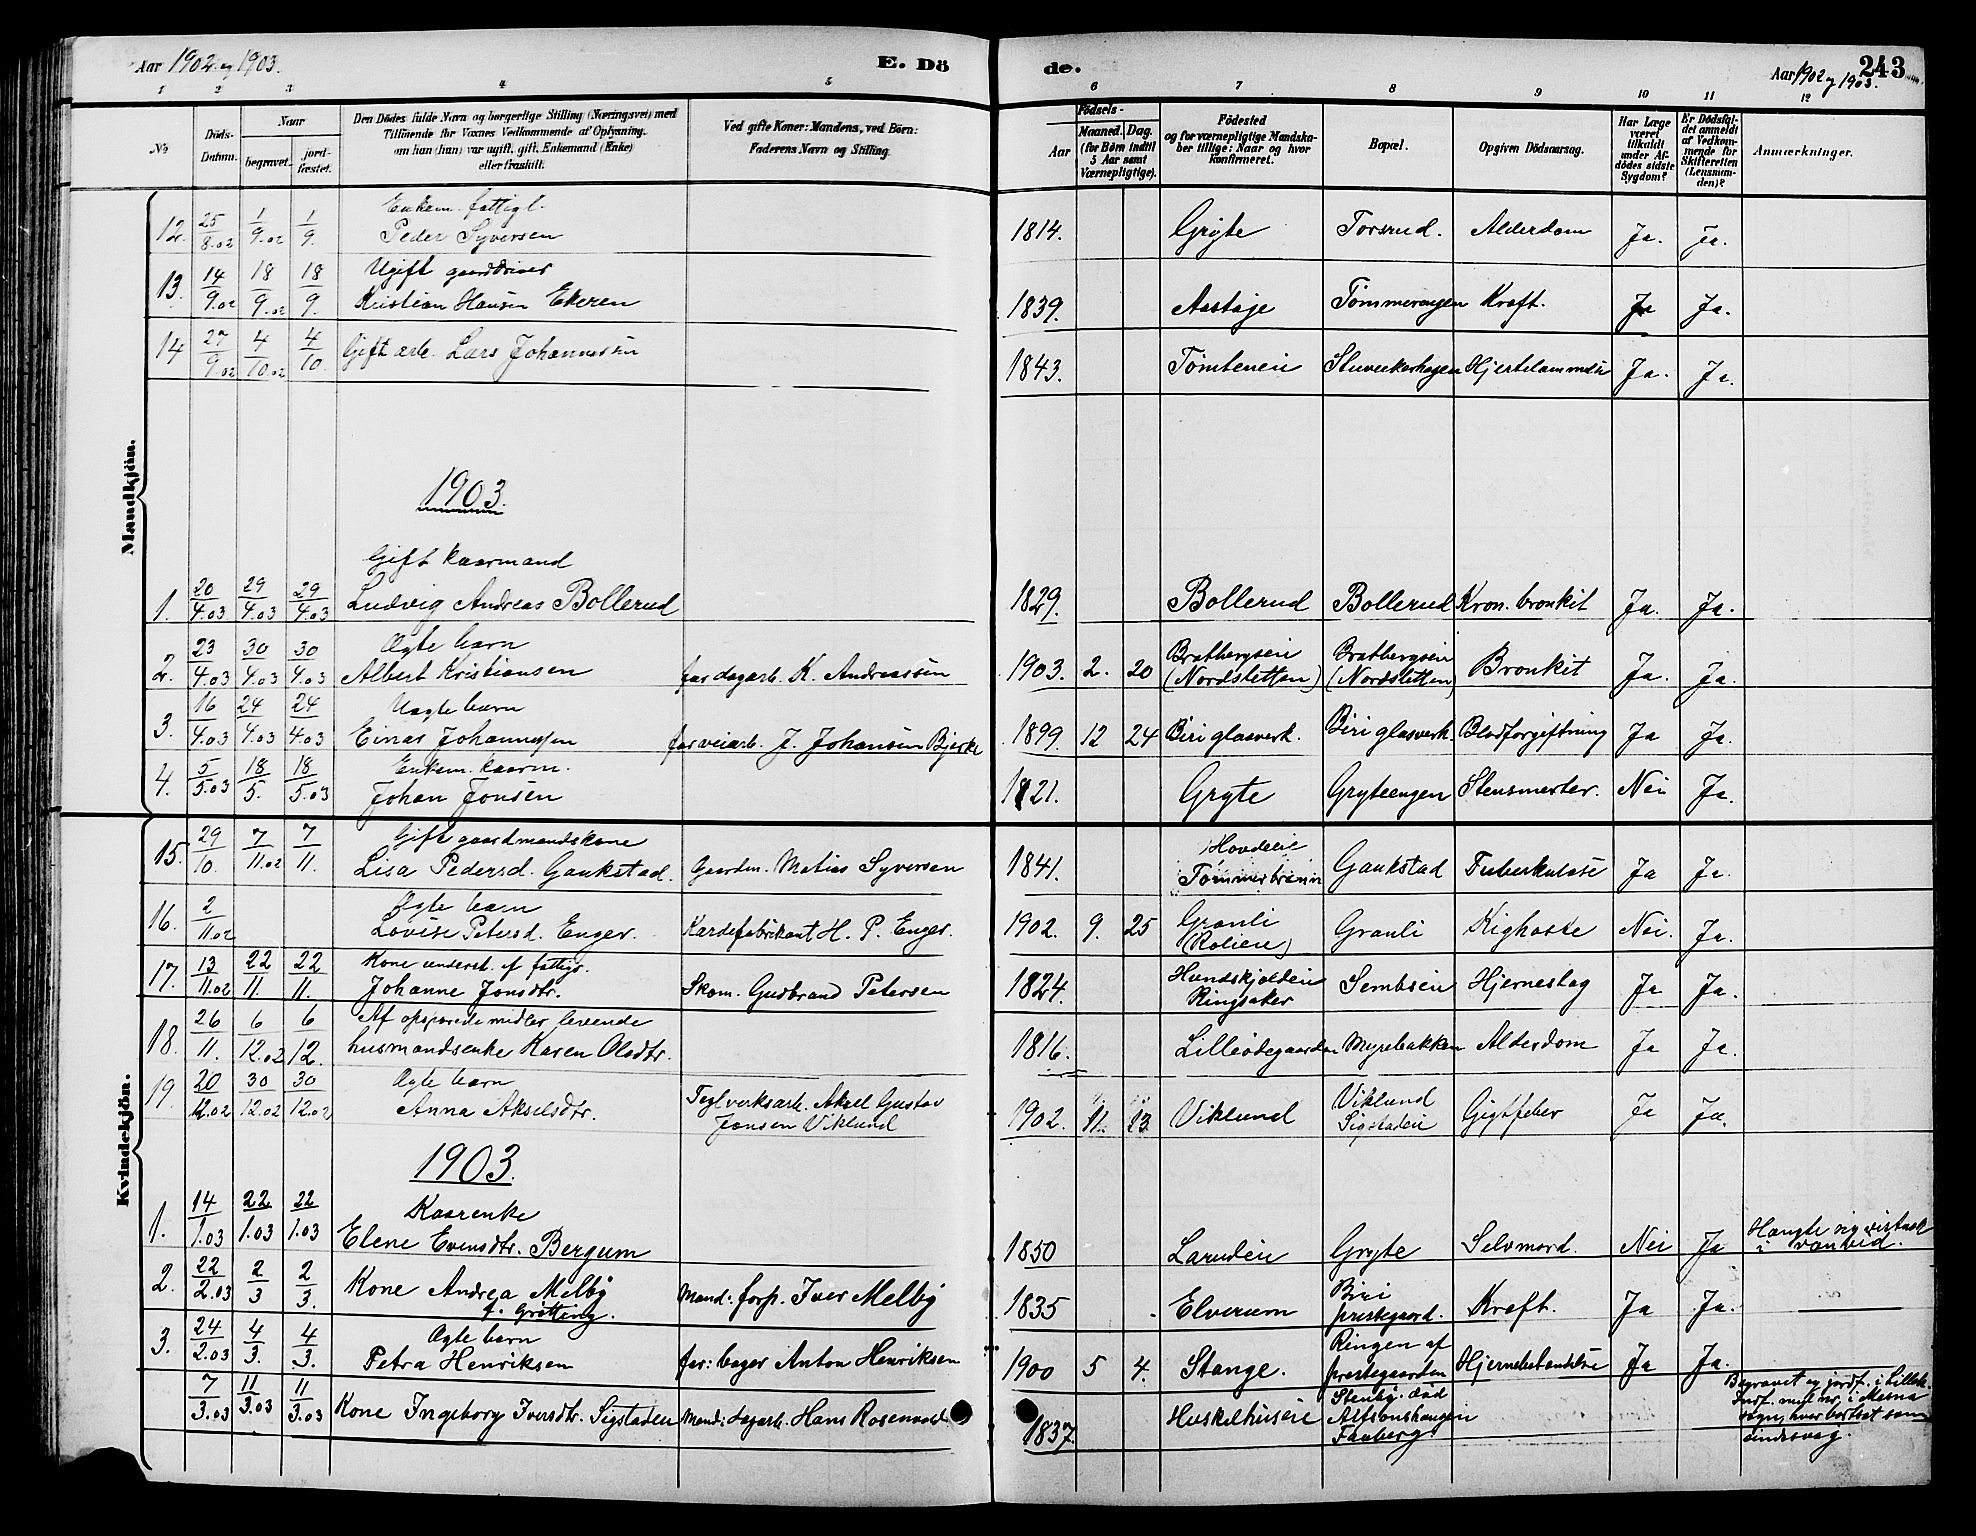 Aar 1902 og 1903.
E. Dö
de.
Aar 1902 og 1903.
243
1 2 3 4 5
6 7 8 9 10 11 12
No
Döds-Datum.
Naar
begravet.
jordfæstet.
Den Dödes fulde Navn og borgerlige Stilling (Næringsvei) med
Tilföiende for Voxnes Vedkommende af Oplysning,
om han (hun) var ugift, gift, Enkemand (Enke)
eller fraskilt.
Ved gifte Koner: Mandens, ved Börn:
Faderens Navn og Stilling.
Födsels-
Aar
Maaned. Dag.
(for Börn indtil
5 Aar samt
Værnepligtige).
Födested
og for værnepligtige Mandskaber
tillige: Naar og hvor
konfirmeret.
Bopæl.
Opgiven Dödsaarsag.
Har Læge
været
tilkaldt
under Afdödes
sidste
Sygdom?
Er Dödsfaldet
anmeldt
af Vedkommende
for
Skifteretten
(Lensmanden)?
Anmærkninger.
Mandkjön.
12. 25/8.02 1/9.02 1/9. Enkem. fattigl.
Peder Syversen 1814. Gryte Torsrud. Alderdom Ja. Ja.
13. 14/9.02 18/9.02 18/9. Ugift gaardbruer
Kristian Hansen Ekeren 1839. Aastøje Tømmerengen Kræft. Ja Ja.
14 27/9.02 4/10.02 4/10. Gift arb. Lars Johannessen 1843. Tømteneie Stuverkerhagen Hjertelammelse Ja. Ja.
1903.
1. 20/4.03 29/4.03 29/4.03 Gift kaarmand
Ludvig Andreas Bollerud 1829. Bollerud Bollerud Kron. bronkit Ja. Ja.
2. 23/4.03 30/4.03 30/4.03 Ægte barn
Albert Kristiansen far dagarb. K. Andreassen 1903. 2. 20 Bratbergseie (Nordsletten) Bratbergseie (Nordsletten) Bronkit Ja. Ja.
3. 16/4.03 24/4.03 24/4.03 Uægte barn
Einar Johannessen far veiarb. J. Johansen Bjerke 1899. 12 24 Biri glasverk. Biri glasverk. Blodforgiftning Ja Ja.
4. 5/5.03 18/5. 18/5.03 Enkem. kaarm.
Johan Jonsen 1821. Gryte Gryteengen Stensmerter. Nei Ja.
Kvindekjön.
15. 29/10. 7/11.02 7/11. Gift gaardmandskone
Lisa Pedersd. Gaukstad. Gaardm. Matias Syversen 1841. Hovdeie Tømmerbrænn Gaukstad Tuberkulose Ja Ja.
16. 2/11.02 Ægte barn
Lovise Petersd. Enger. Kardefabrikant H. P. Enger. 1902. 9. 25 Granli (Kolien) Granli Kighoste Nei. Ja.
17. 13/11.02 22/11. 22/11. Kone underst. af fattigv.
Johanne Jonsdtr. Skom. Gudbrand Petersen 1824. Hundskjoldeie Ringsaker Sembseie Hjerneslag Ja Ja.
18. 26/11. 6/12.02 6/12. Af opsparede midler levende
husmandsenke Karen Olsdtr. 1816. Lilleødegaarden Myrebakken Alderdom Ja Ja.
19. 20/12.02 30/12.02 30/12.02 Ægte barn
Anna Akselsdtr. Teglverksarb. Aksel Gustav
Jonsen Viklund 1902. 11. 13 Viklund Viklund Sigstadeie Gigtfeber Ja Ja.
1903.
1. 14/1.03 22/1.03 22/1.03 Kaarenke
Elene Evensdtr. Bergum 1850 Larudeie Gryte Selvmord. Nei Ja Hængte sig
i vanvid.
2. 22/2.03 2/3 2/3. Kone Andrea Melby
f. Grøtting. Mand: forp. Iver Melby 1835 Elverum Biri prestegaard. Kræft. Ja Ja.
3. 24/2.03 4/3. 4/3. Ægte barn
Petra Henriksen far: bager Anton Henriksen 1900 5 4. Stange. Ringen af prestegaarden Hjernebetændelse Ja Ja.
7/3.03 11/3.03 11/3.03 Kone Ingeborg Iversdtr. Sigstaden Mand: dagarb. Hans Rosenvold. 1837. Huskelhuseie Stenby. død
Alfstadhaugen
Faaberg. Begravet og jordf. i Lilleh.
i Mesna
sogn, hvor bortsat som
sindssvag.